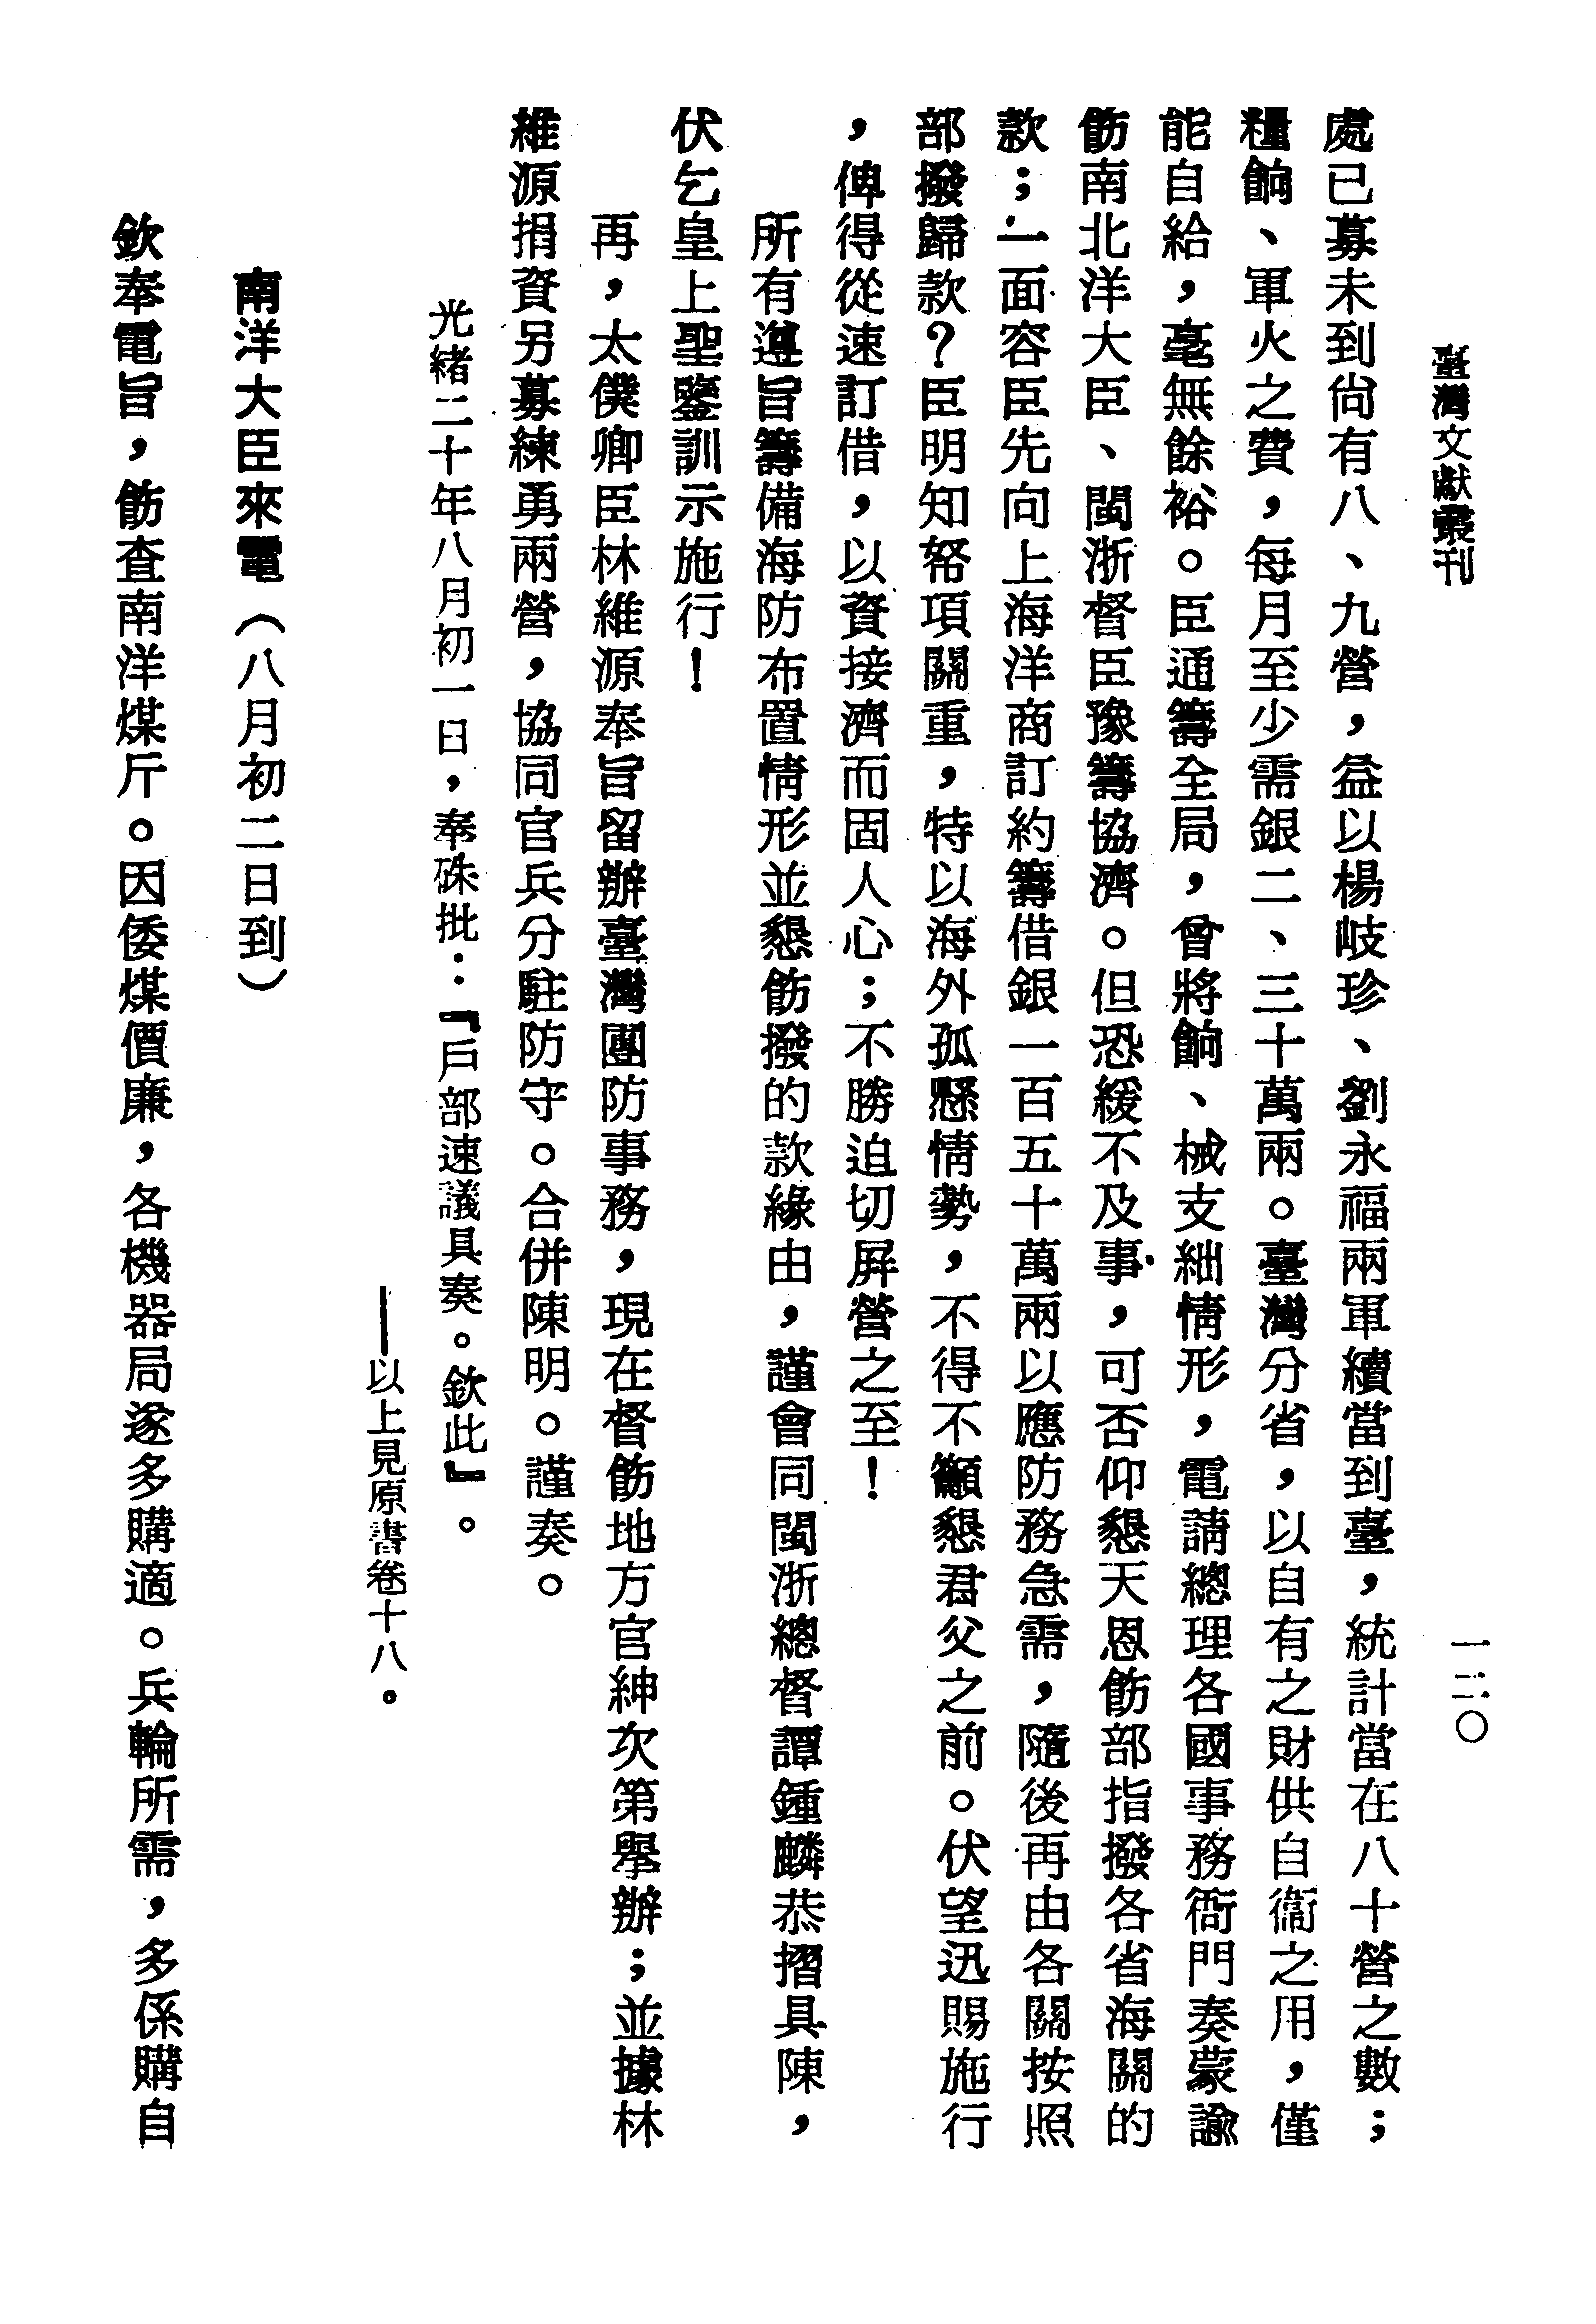 臺灣文獻叢刊
一三〇
處已募未到尙有八、九營，益以楊岐珍、劉永福兩軍續當到臺，統計當在八十營之數；
糧餉、軍火之費，每月至少需銀二、三十萬兩。臺灣分省，以自有之財供自衞之用，僅
能自給，毫無餘裕。臣通籌全局，曾將餉、械支絀情形，電請總理各國事務衙門奏蒙諭
飭南北洋大臣、閩浙督臣豫籌協濟。但恐緩不及事，可否仰懇天恩飭部指撥各省海關的
款；一面容臣先向上海洋商訂約籌借銀一百五十萬兩以應防務急需，隨後再由各關按照
部撥歸款？臣明知帑項關重，特以海外孤懸情勢，不得不籲懇君父之前。伏望迅賜施行
，俾得從速訂借，以資接濟而固人心；不勝迫切屏營之至！
所有遵旨籌備海防布置情形並懇飭撥的款緣由，謹會同閩浙總督譚鍾麟恭摺具陳，
伏乞皇上聖鑒訓示施行！
再，太僕卿臣林維源奉旨留辦臺灣團防事務，現在督飭地方官紳次第舉辦；並據林
維源捐資另募練勇兩營，協同官兵分駐防守。合併陳明。謹奏。
光緒二十年八月初一日，奉硃批：『戶部速議具奏。欽此』。
——以上見原書卷十八。
南洋大臣來電（八月初二日到）
欽奉電旨，飭查南洋煤斤。因倭煤價廉，各機器局遂多購適。兵輪所需，多係購自